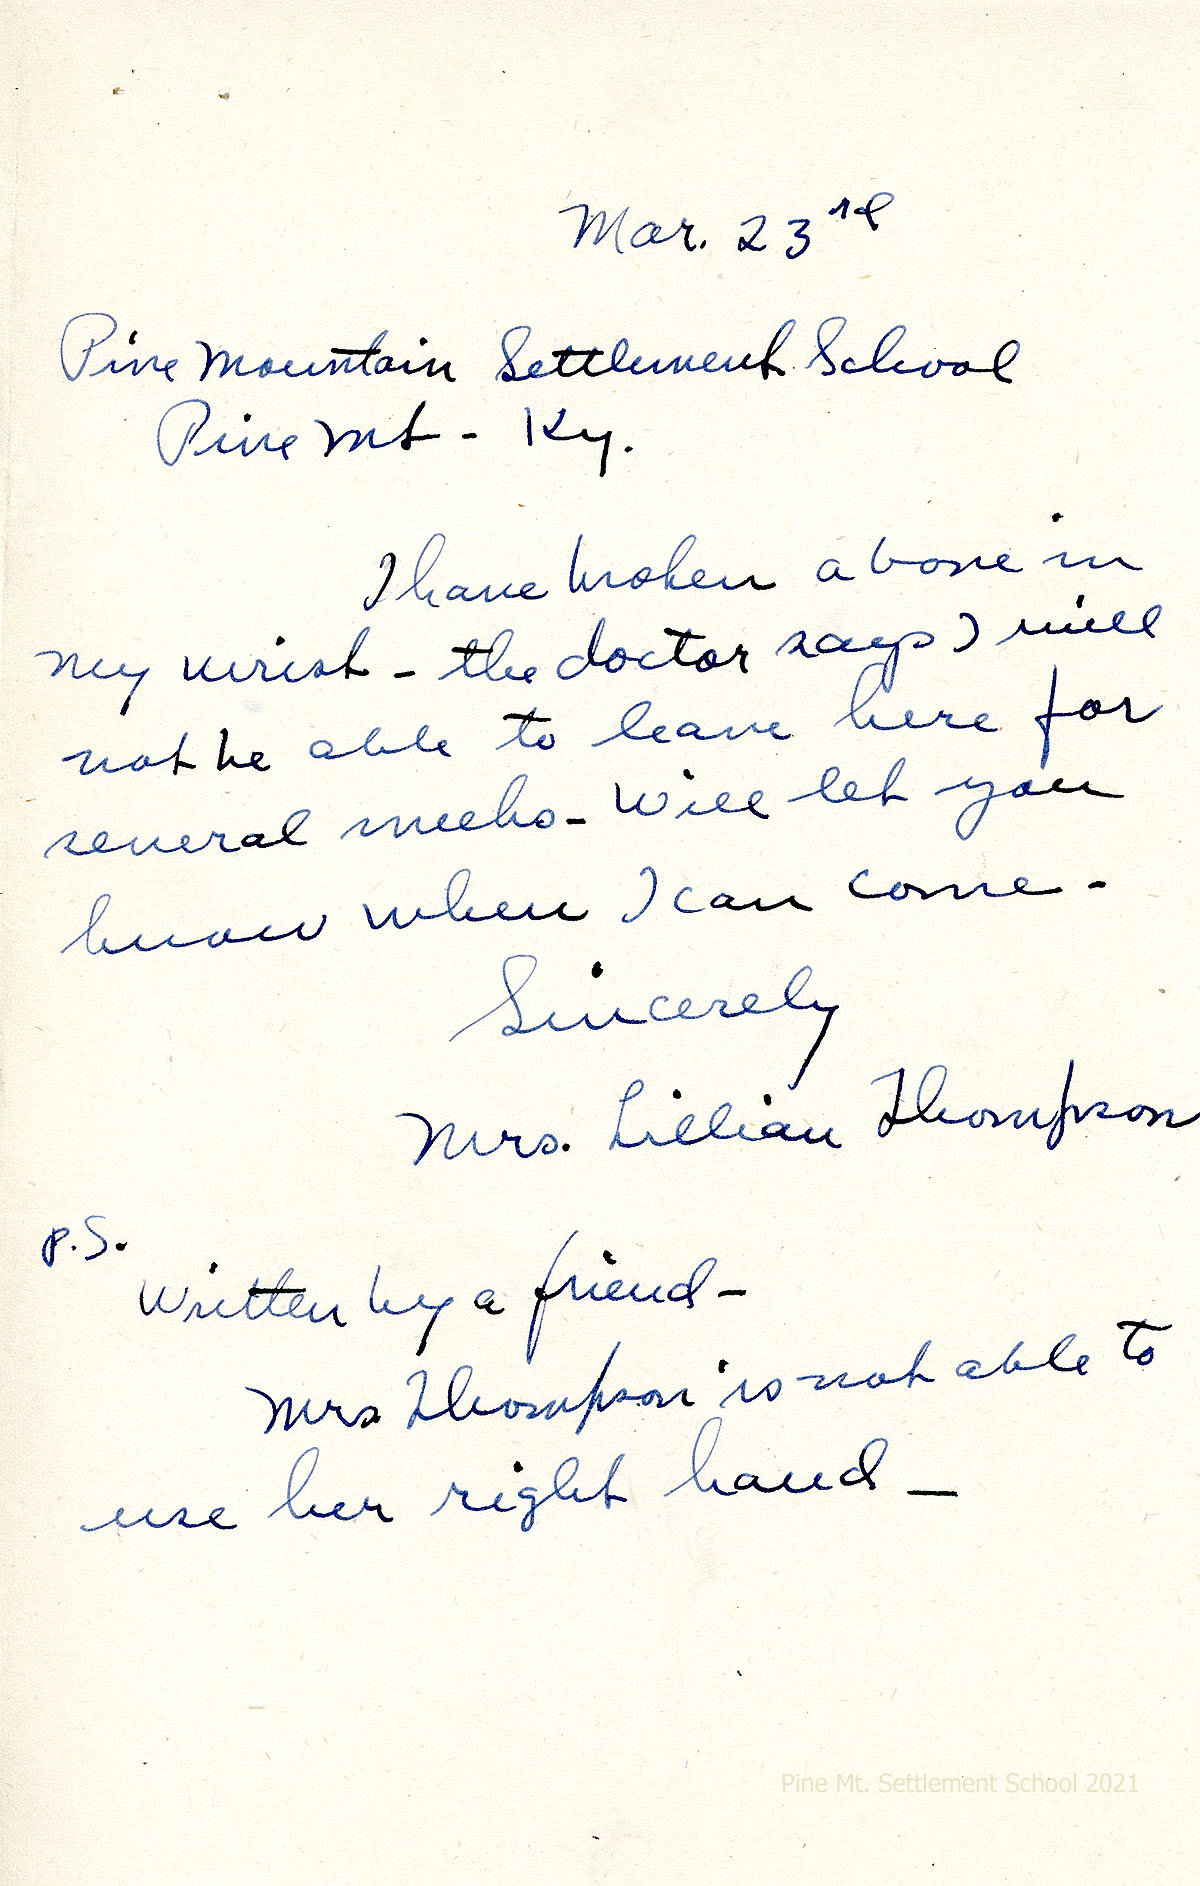 Mar. 23rd
Pine Mountain Settlement School
Pine Mt - Ky.
I have broken a bone in
my wrist - the doctor says I will
not be able to leave here for
several weeks - Will let you
know when I can come -
Sincerely
Mrs. Lillian Thompson
P.S.
Written by a friend -
Mrs Thompson is not able to
use her right hand -
Pine Mt. Settlement School 2021